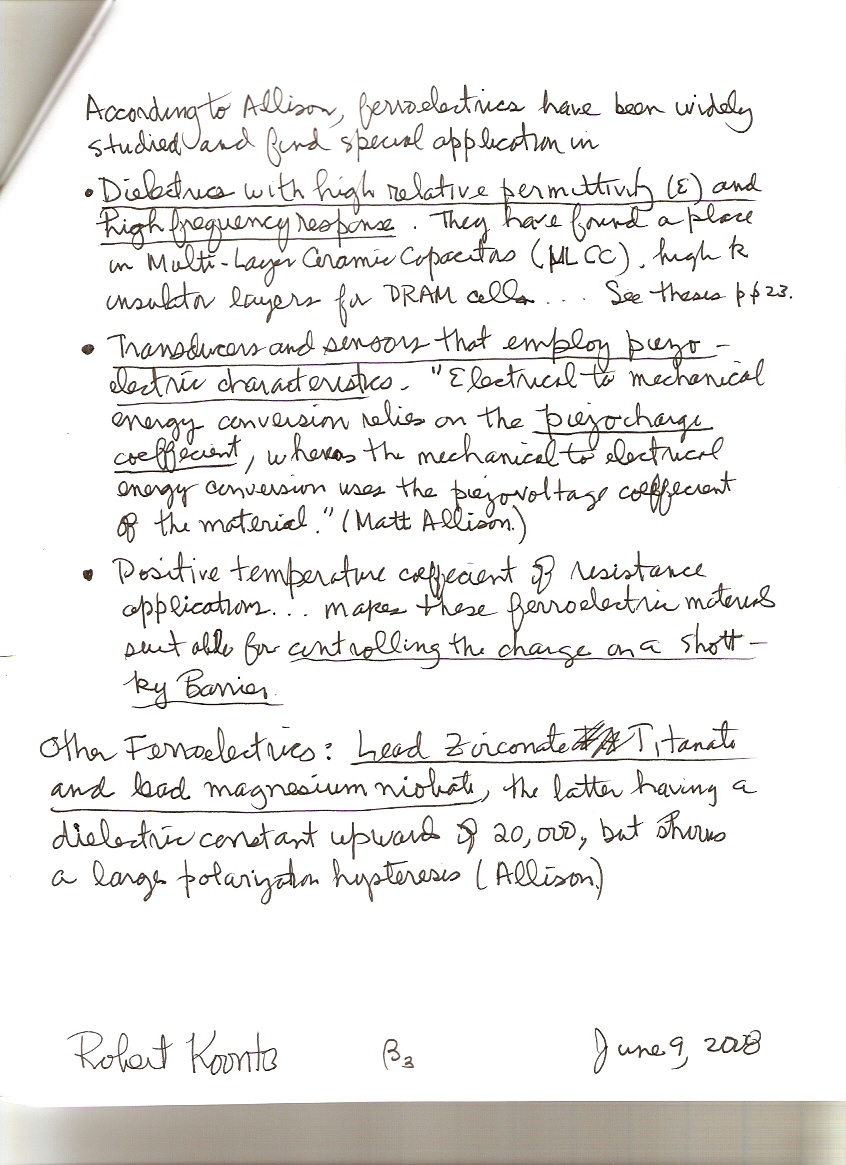 According to Allison, ferroelectrics have been widely
studied and find special application in
• Dielectrics with high relative permittivity (ε) and
high frequency response. They have found a place
in Multi-Layer Ceramic Capacitors (MLCC), high k
insulator layers for DRAM cells... See thesis p 23.
• Transducers and sensors that employ piezo-
electric characteristics. "Electrical to mechanical
energy conversion relies on the piezocharge
coeffecient, whereas the mechanical to electrical
energy conversion uses the piezovoltage coeffecient
of the material." (Matt Allison.)
• Positive temperature coeffecient of resistance
applications... makes these ferroelectric materials
suitable for controlling the charge on a Shott-
ky Barrier.
Other Ferroelectrics: Lead Zirconate Titanate
and lead magnesium niobate, the latter having a
dielectric constant upward of 20,000, but shows
a large polarization hysteresis (Allison)
Robert Koontz B3 June 9, 2008